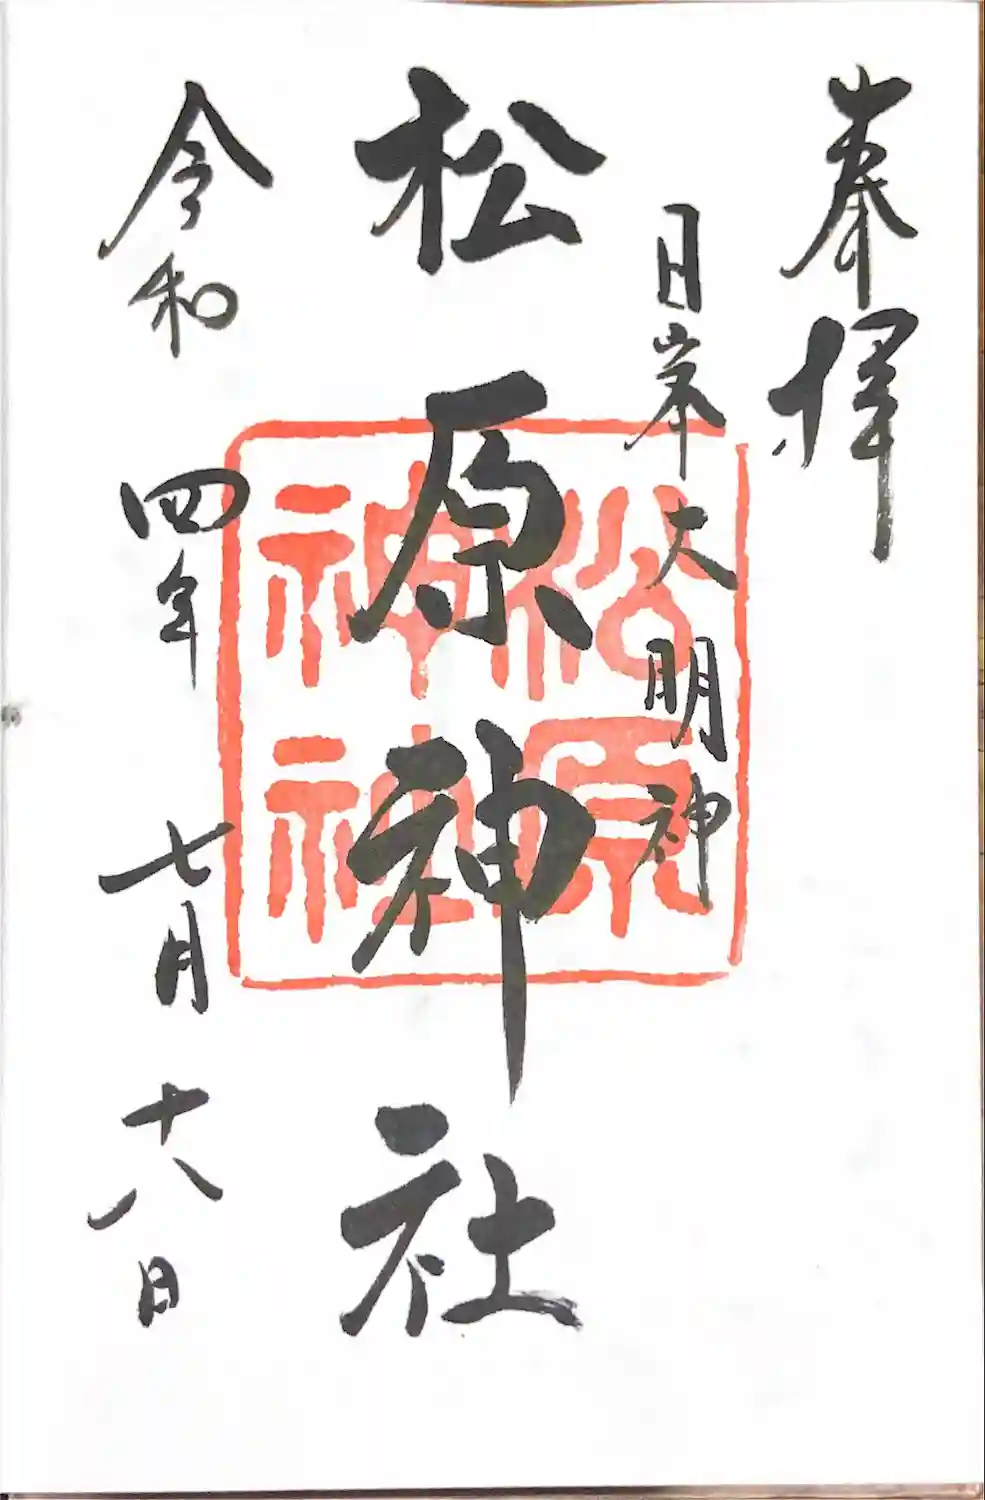 奉拝
日峯大明神
松原神社
令和四年七月十八日
松原
神社